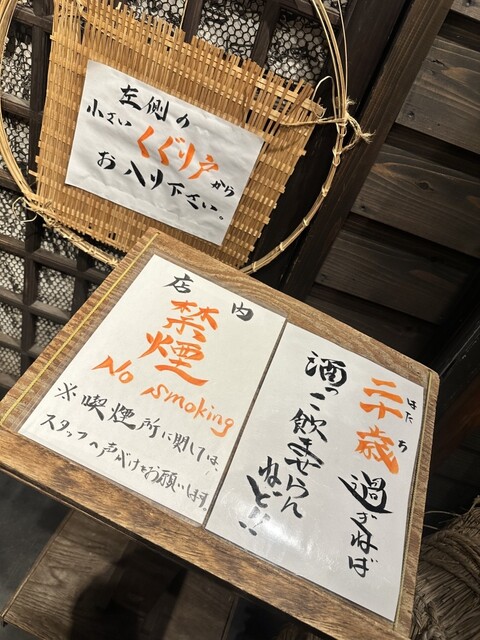 左側の
小さい くぐり戸から
お入り下さい。
店内
禁煙
No smoking
※喫煙所に関しては、
スタッフへ声がけをお願いします。
二十歳 過ぎねば
はたち
酒っこ飲ませらん
ねど!!